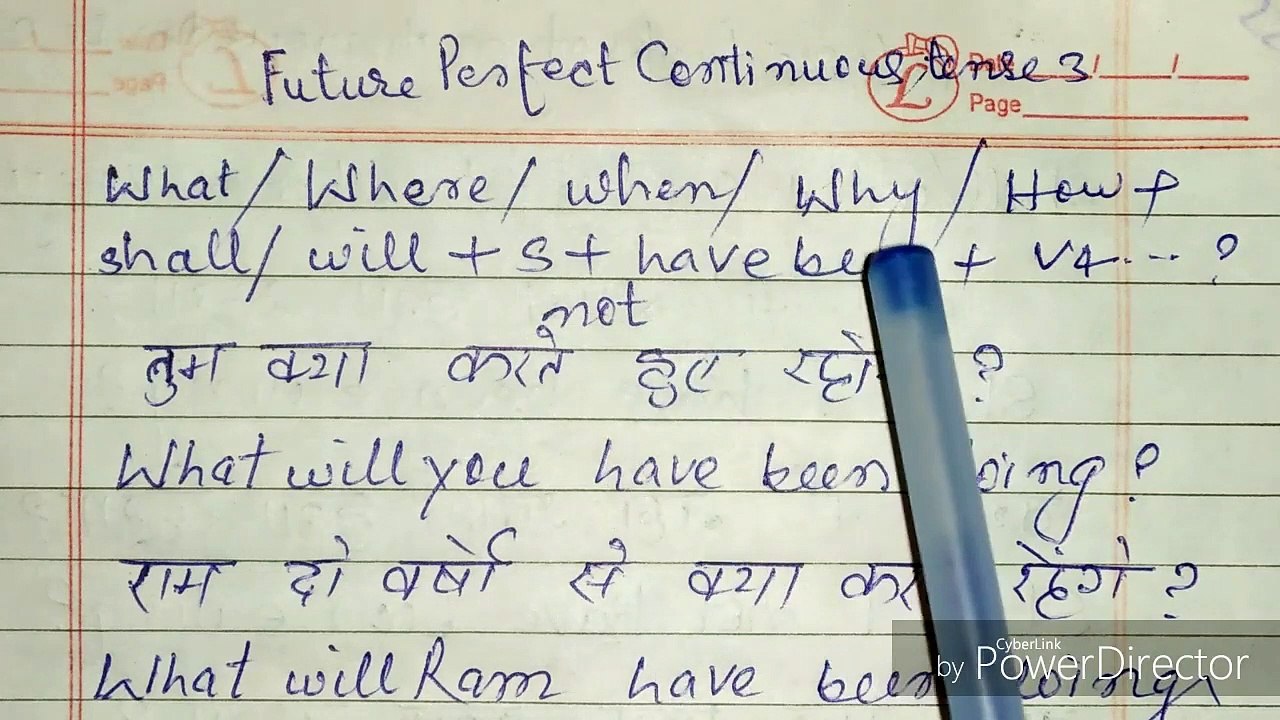 Future Perfect Continuous tense 3
Page
What / Where / when / Why / How +
shall / will + S + have be + V4 ... ?
not
तुम क्या करते हुए रहो ?
What will you have been oing ?
राम दो वर्षो से क्या कर रहेंगे ?
What will Ram have been oing
CyberLink
by PowerDirector